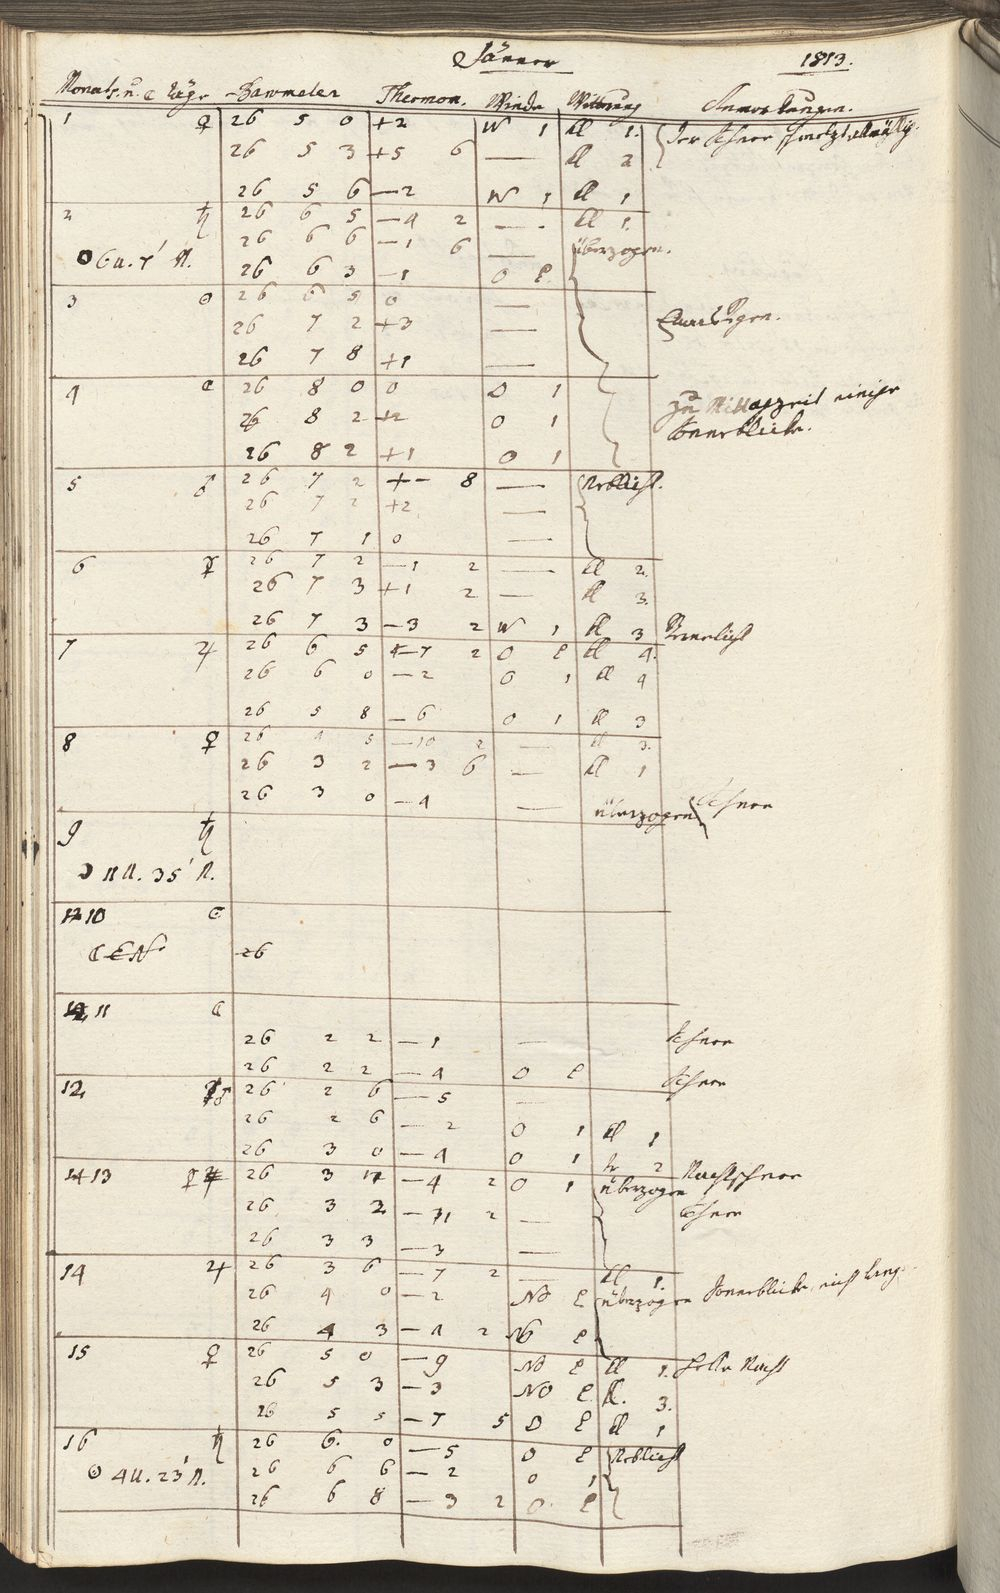 Jänner 1813.
Monats u. ☾ Täge Barometer Thermom. Winde Witterung Anmerkungen.
1 ♀ 26 5 0 +2 W 1 ll 1. Der Schnee schmolz allmällig.
26 5 3 +5 6 — ll 2
26 5 6 —2 W 1 ll 1
2 ♄ 26 6 5 —4 2 — ll 1.
26 6 6 —1 6 — überzogen.
6 U. 7' N. 26 6 3 —1 O
3 ☉ 26 6 5 0 —
26 7 2 +3 —
26 7 8 +1 —
4 ☾ 26 8 0 0 O 1 zu Mittagszeit einige
26 8 2 +2 O 1 Sonnenblicke.
26 8 2 +1 O 1
5 ♂ 26 7 2 +— 8 — Neblicht.
26 7 2 +2 —
26 7 1 0 —
6 ☿ 26 7 2 —1 2 — ll 2.
26 7 3 +1 2 — ll 3.
26 7 3 —3 2 W 1 ll 3
7 ♃ 26 6 5 —7 2 O ll 4.
26 6 0 —2 O 1 ll 4
26 5 8 —6 O 1 ll 3
8 ♀ 26 4 5 —10 2 — ll 3.
26 3 2 —3 6 — ll 1
26 3 0 —4 — überzogen Schnee
9 ♄
☽ 11 U. 35' N.
10 ☉
26
11 ☾
26 2 2 —1 — Schnee
26 2 2 —4 O Schnee
12 ♂ 26 2 6 —5 —
26 2 6 —2 O 1 ll 1
26 3 0 —4 O 1 tr 2
13 ☿ 26 3 —4 2 O 1 überzogen Nachtschnee
26 3 2 2 — Schnee
26 3 3 —3 —
14 ♃ 26 3 6 —7 2 — ll 1.
26 4 0 —2 NO überzogen Sonnenblicke, nicht lang.
26 4 3 —4 2 NO
15 ♀ 26 5 0 —9 NO ll 1. Helle Nacht
26 5 3 —3 NO ll. 3.
26 5 5 —7 5 O ll 1
16 ♄ 26 6. 0 —5 O Neblicht
4 U. 23' N. 26 6 6 —2 O 1
26 6 8 —3 2 O